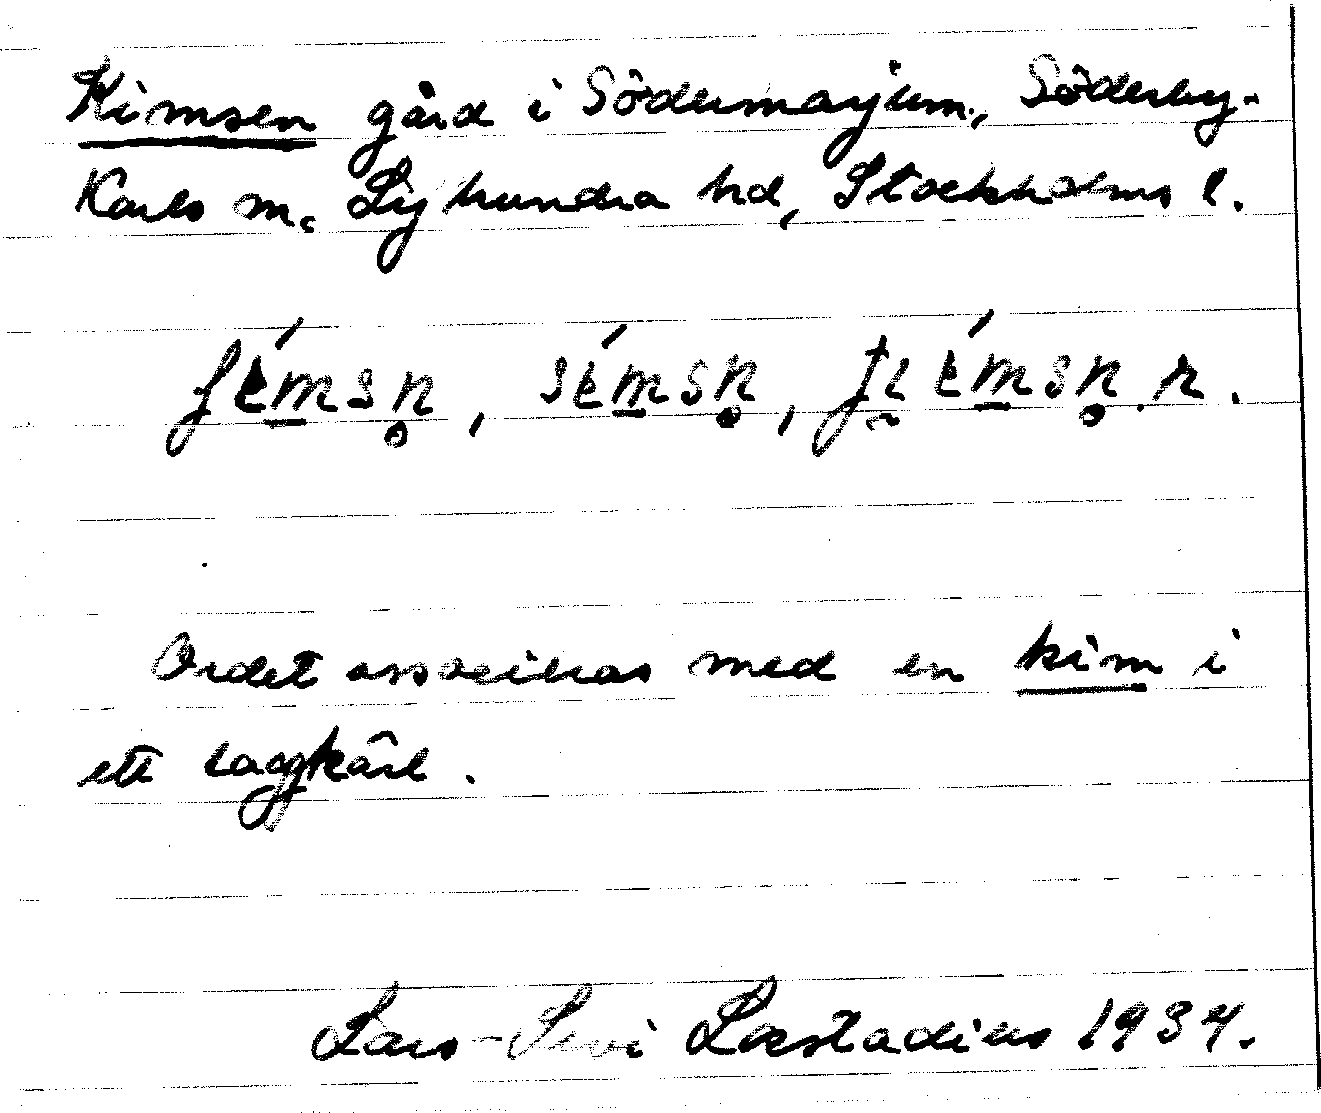 Kimsen gård i Södermarjum, Söderby-
Karls sn. Lyhundra hd, Stockholms l.
Ordet associeras med en kim i
ett laggkärl.
Lars-Levi Læstadius 1934.